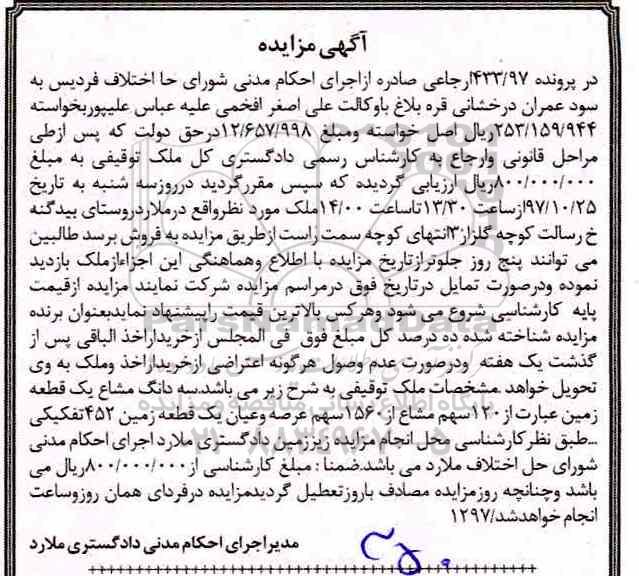 آگهی مزایده
در پرونده ۴۳۳/۹۷ارجاعی صادره ازاجرای احکام مدنی شورای حا اختلاف فردیس به
سود عمران درخشانی قره بلاغ باوکالت علی اصغر افخمی علیه عباس علیپوربخواسته
۲۵۳/۱۵۹/۹۴۴ریال اصل خواسته ومبلغ ۱۲/۶۵۷/۹۹۸درحق دولت که پس ازطی
مراحل قانونی وارجاع به کارشناس رسمی دادگستری کل ملک توقیفی به مبلغ
۸۰۰/۰۰۰/۰۰۰ریال ارزیابی گردیده که سپس مقررگردید درروزسه شنبه به تاریخ
۹۷/۱۰/۲۵ازساعت ۱۳/۳۰تاساعت ۱۴/۰۰ملک مورد نظرواقع درملاردروستای بیدگنه
خ رسالت کوچه گلزار۳انتهای کوچه سمت راست ازطریق مزایده به فروش برسد طالبین
می توانند پنج روز جلوترازتاریخ مزایده با اطلاع وهماهنگی این اجراءازملک بازدید
نموده ودرصورت تمایل درتاریخ فوق درمراسم مزایده شرکت نمایند مزایده ازقیمت
پایه کارشناسی شروع می شود وهرکس بالاترین قیمت راپیشنهاد نمایدبعنوان برنده
مزایده شناخته شده ده درصد کل مبلغ فوق فی المجلس ازخریداراخذ الباقی پس از
گذشت یک هفته ودرصورت عدم وصول هرگونه اعتراضی ازخریداراخذ وملک به وی
تحویل خواهد .مشخصات ملک توقیفی به شرح زیر می باشد.سه دانگ مشاع یک قطعه
زمین عبارت از۱۲۰سهم مشاع از۱۵۶۰سهم عرصه وعیان یک قطعه زمین ۴۵۲تفکیکی
...طبق نظرکارشناسی محل انجام مزایده زیرزمین دادگستری ملارد اجرای احکام مدنی
شورای حل اختلاف ملارد می باشد.ضمنا : مبلغ کارشناسی از۸۰۰/۰۰۰/۰۰۰ریال می
باشد وچنانچه روزمزایده مصادف باروزتعطیل گردیدمزایده درفردای همان روزوساعت
انجام خواهدشد/۱۲۹۷
مدیراجرای احکام مدنی دادگستری ملارد
ParsNamadData
پایگاه اطلاع رسانی مناقصه و مزایده